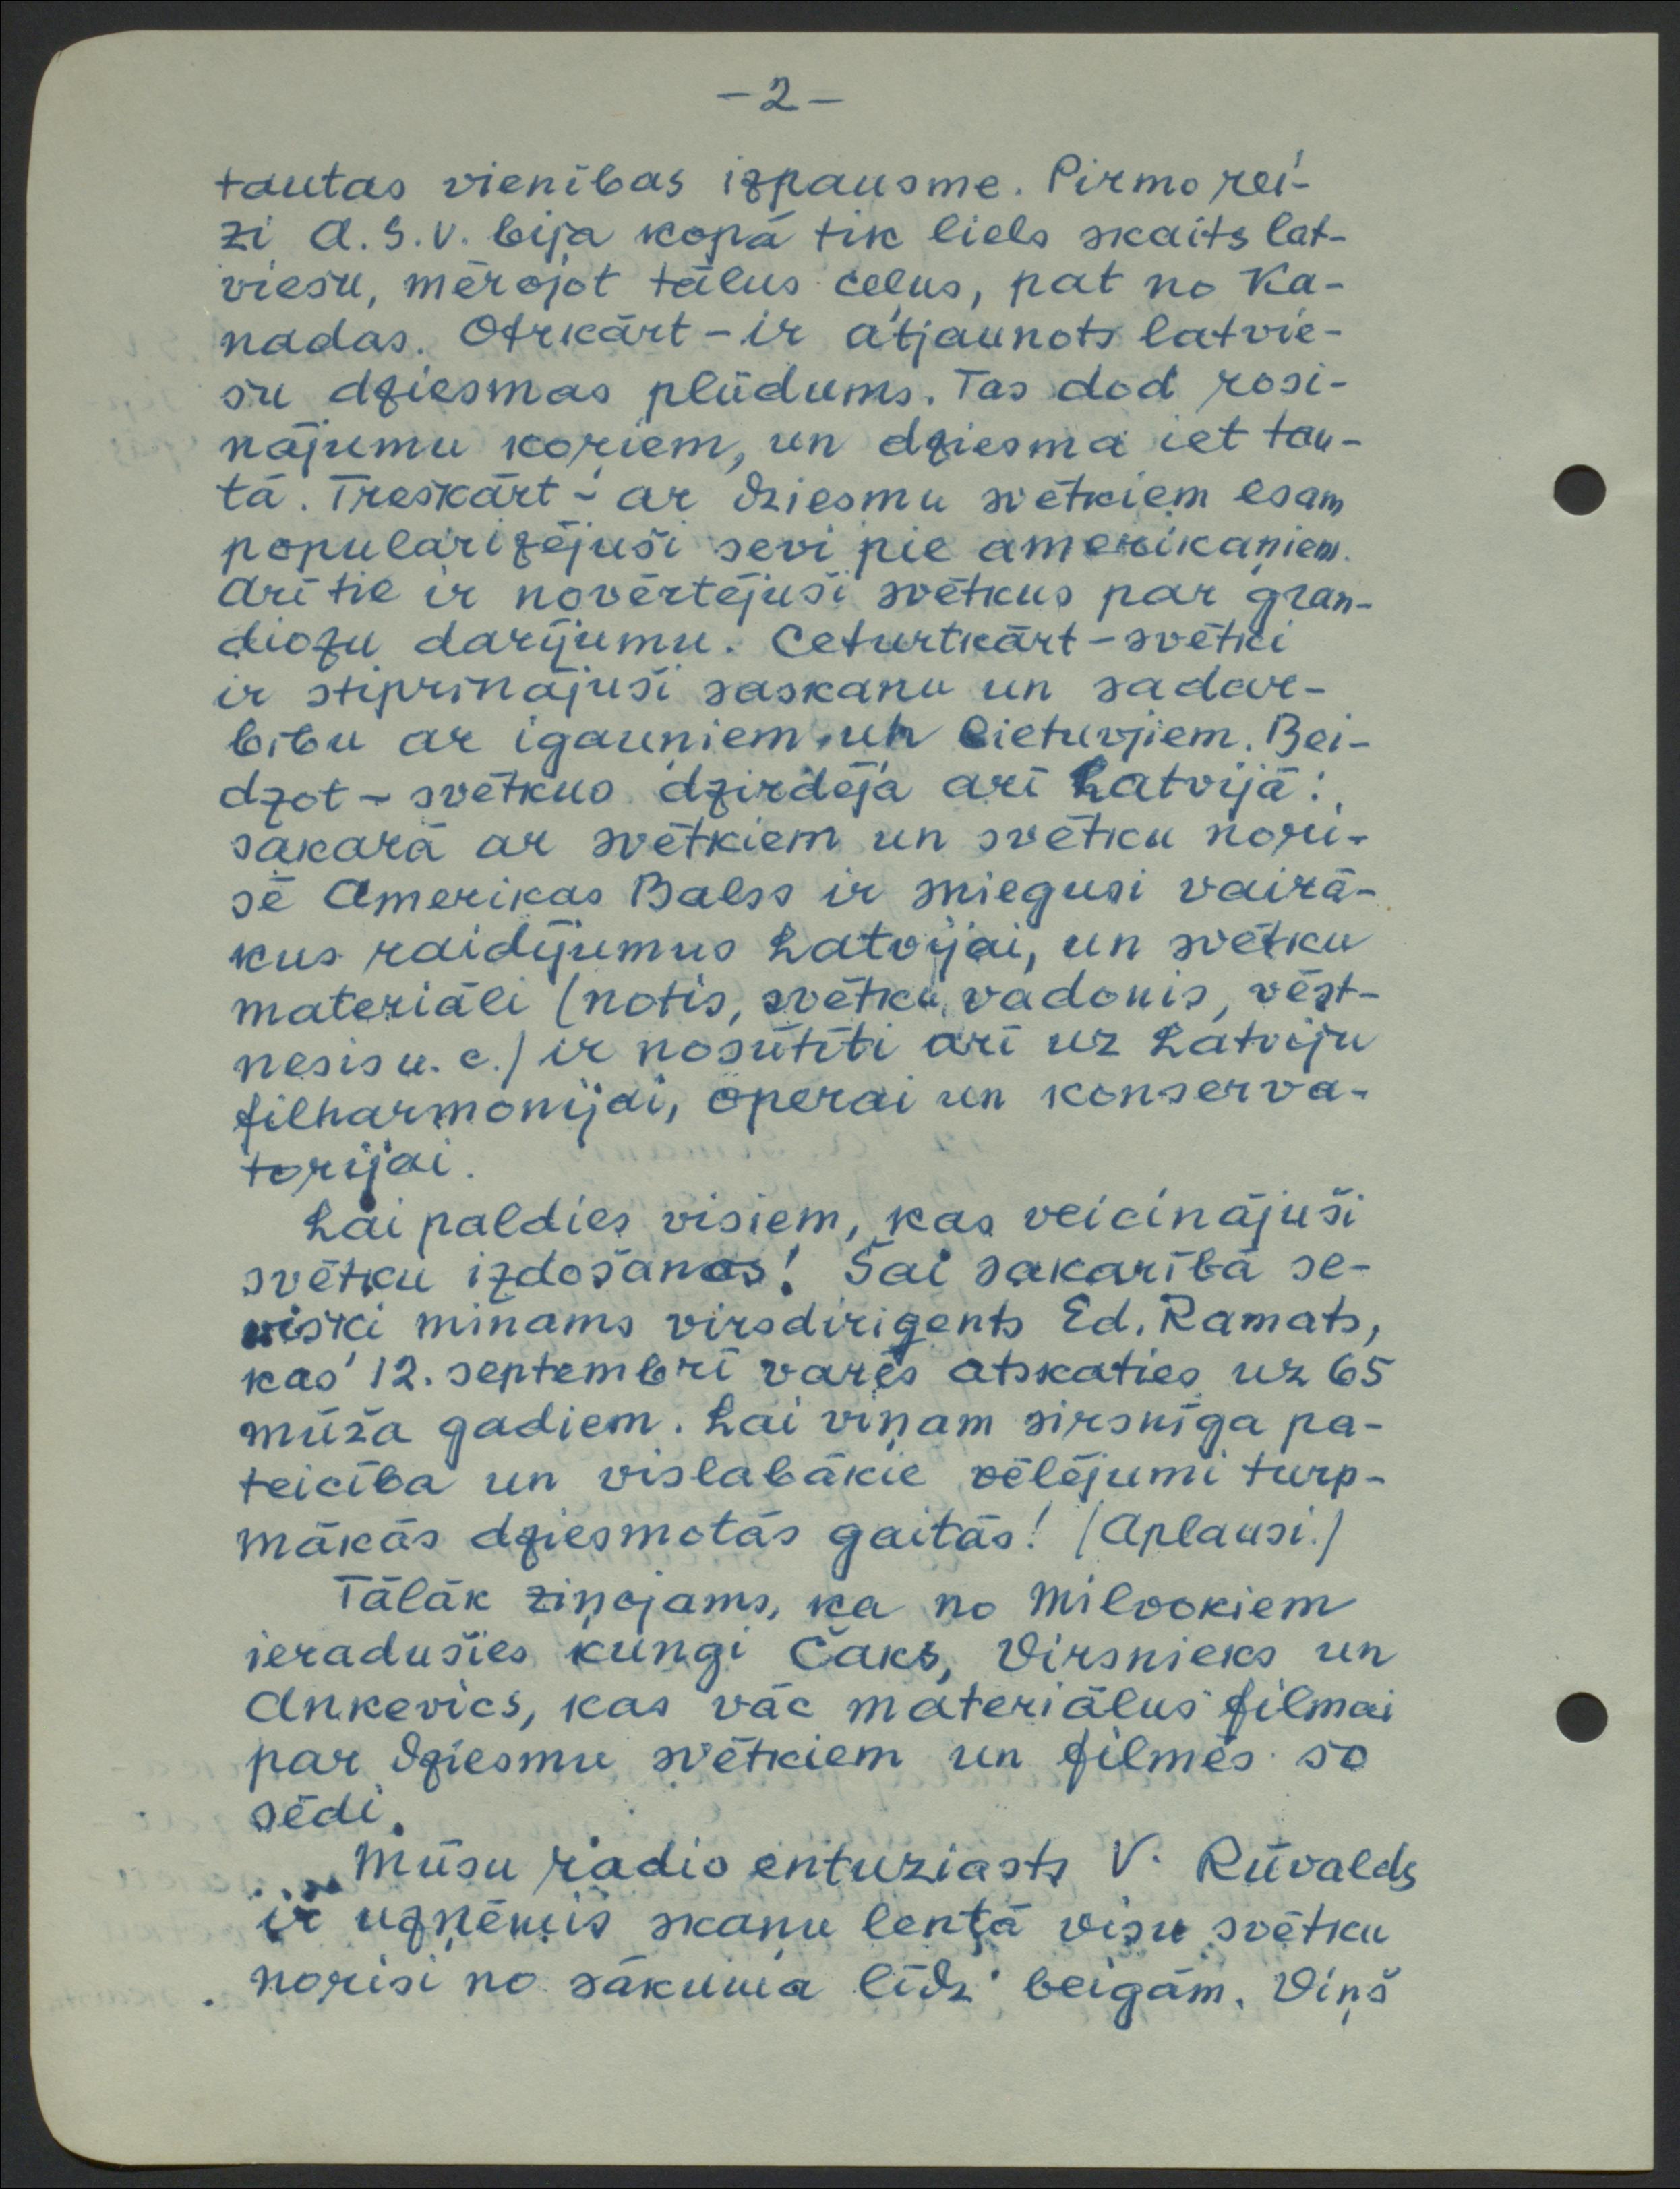 -2-
tautas vienības izpausme. Pirmo rei-
zi A.S.V. bija kopā tik liels skaits lat-
viešu, mērojot tālus ceļus, pat no Ka-
nadas. Otrkārt - ir atjaunots latvie-
šu dziesmas plūdums. Tas dod rosi-
nājumu koriem, un dziesma iet tau-
tā. Treškārt - ar dziesmu svētkiem esam
popularizējuši sevi pie amerikaņiem.
Arī tie ir novērtējuši svētkus par gran-
diozu darījumu. Ceturtkārt - svētki
ir stiprinājuši saskaņu un sadar-
bību ar igauņiem un lietuvjiem. Bei-
dzot - svētkus dzirdēja arī Latvijā:
sakarā ar svētkiem un svētku nori-
sē Amerikas Balss ir sniegusi vairā-
kus raidījumus Latvijai, un svētku
materiāli (notis, svētku vadonis, vēst-
nesis u.c.) ir nosūtīti arī uz Latviju
filharmonijai, operai un konserva-
torijai.
Lai paldies visiem, kas veicinājuši
svētku izdošanos! Šai sakarībā se-
višķi mināms virsdiriģents Ed. Ramats,
kas 12. septembrī varēs atskaties uz 65
mūža gadiem. Lai viņam sirsnīga pa-
teicība un vislabākie vēlējumi turp-
mākās dziesmotās gaitās! (Aplausi.)
Tālāk ziņojams, ka no Milvokiem
ieradušies kungi Čaks, Virsnieks un
Ankevics, kas vāc materiālus filmai
par dziesmu svētkiem un filmēs šo
sēdi.
Mūsu radio entuziasts V. Rūvalds
ir uzņēmis skaņu lentā visu svētku
norisi no sākuma līdz beigām. Viņš